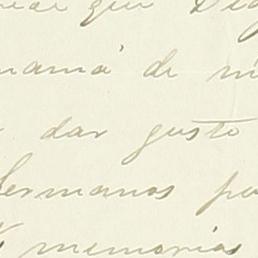 que
mamá de
dar gusto
hermanos
memorias